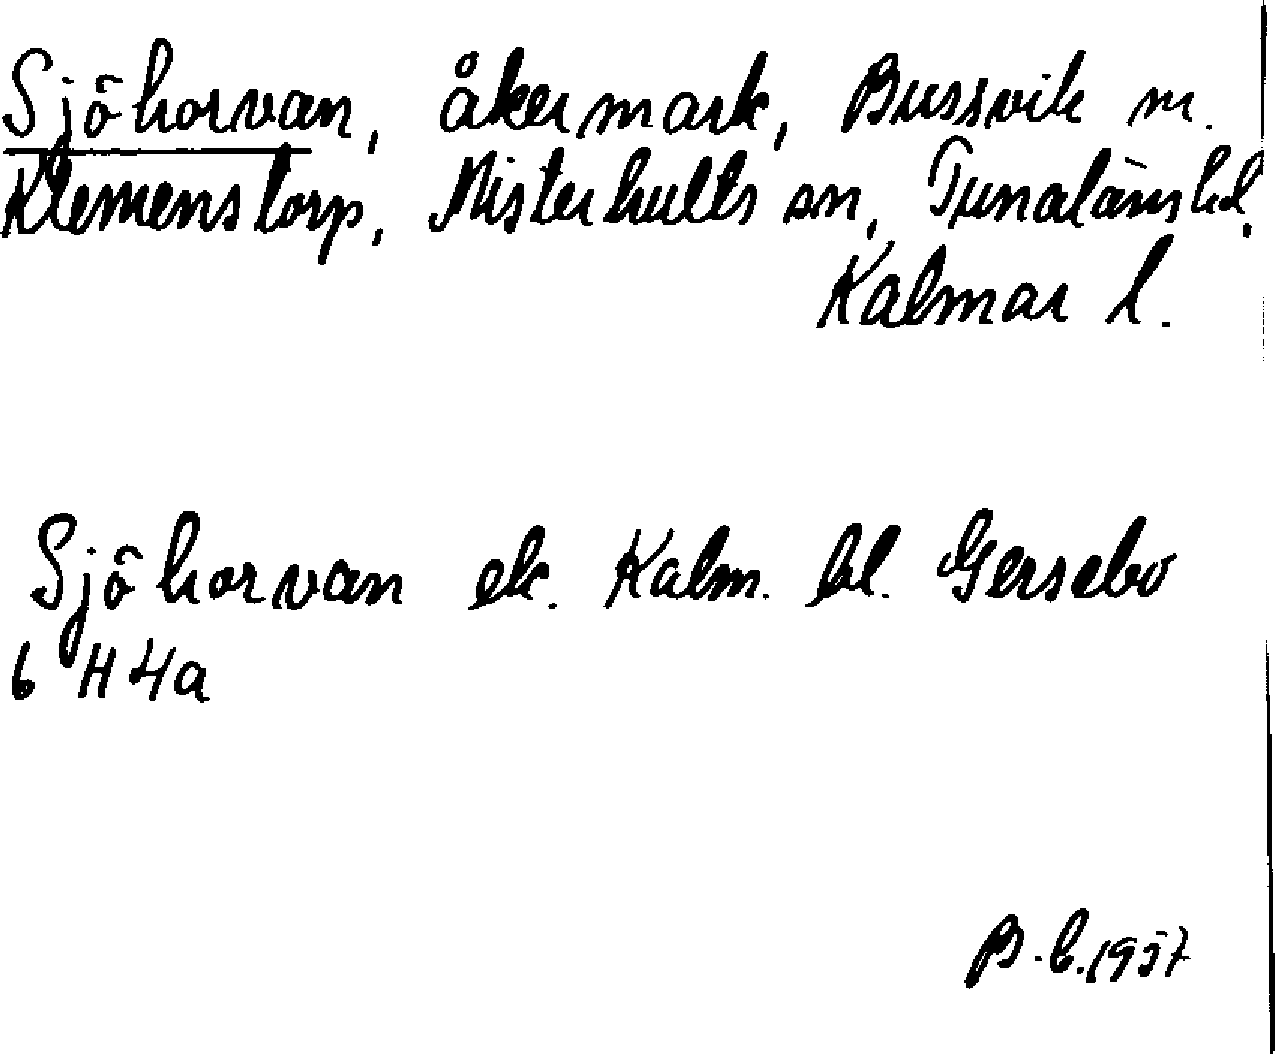 Sjöhorvan, åkermark, Bussvik m.
Klemenstorp, Misterhults sn, Tunaläns hd.
Kalmar l.
Sjöhorvan ek. Kalm. bl. Gersebo
6 H 4a
B.L. 1937